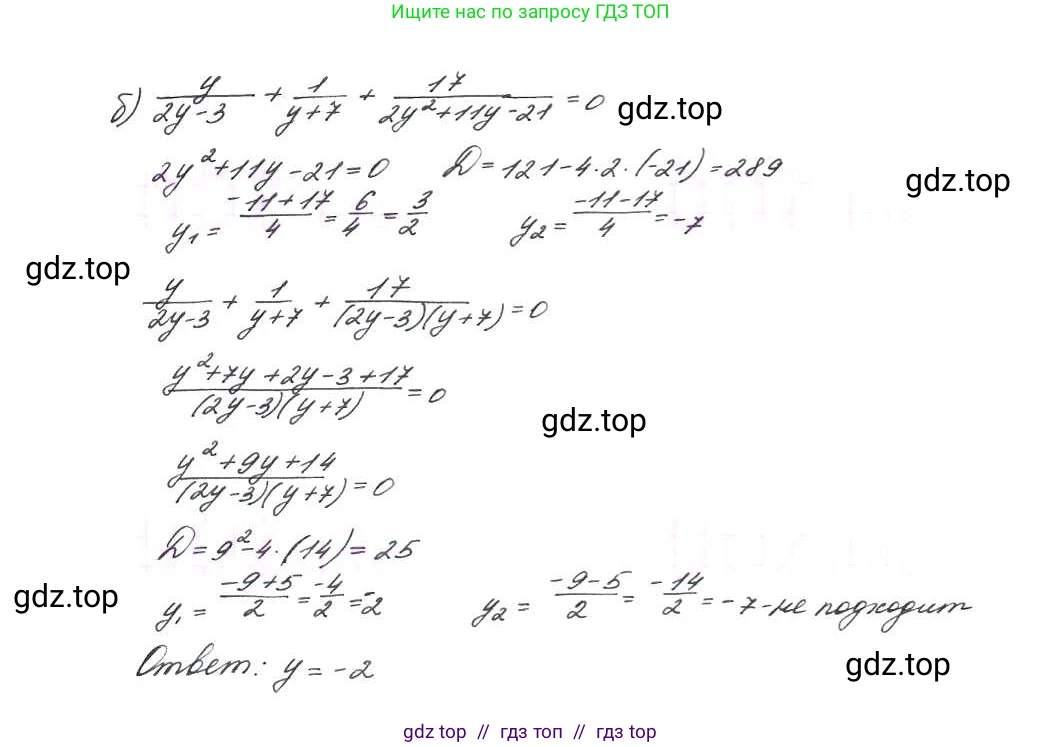 Ищите нас по запросу ГДЗ ТОП
б) y/(2y-3) + 1/(y+7) + 17/(2y²+11y-21) = 0
gdz.top
2y²+11y-21=0 D=121-4·2·(-21)=289
gdz.top
y₁ = (-11+17)/4 = 6/4 = 3/2 y₂ = (-11-17)/4 = -7
gdz.top
y/(2y-3) + 1/(y+7) + 17/((2y-3)(y+7)) = 0
(y²+7y+2y-3+17)/((2y-3)(y+7)) = 0
gdz.top
(y²+9y+14)/((2y-3)(y+7)) = 0
D=9²-4·(14)=25
gdz.top
y₁ = (-9+5)/2 = -4/2 = -2 y₂ = (-9-5)/2 = -14/2 = -7 - не подходит
Ответ: y = -2
gdz.top
gdz top // гдз топ // gdz top